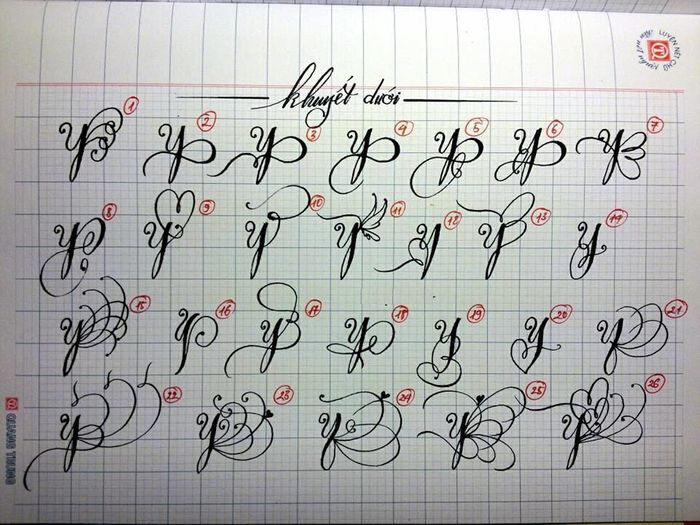 LUYỆN NÉT CHỮ
khuyết dưới
y 1 y 2 y 3 y 4 y 5 y 6 y 7
y 8 y 9 y 10 y 11 y 12 y 13 y 14
y 15 y 16 y 17 y 18 y 19 y 20 y 21
y 22 y 23 y 24 y 25 y 26
QUANG TRUNG